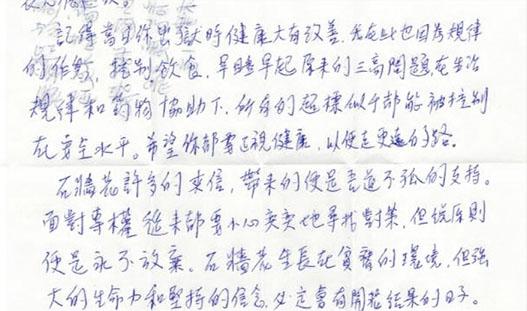 記得當日你出獄時健康大有改善,
也因為規律
的作息,控制飲食,早睡早起原來的三高問題,在生活
規律和药物協助下,所有的超標似乎都能被控制
在安全水平。希望你都要正視健康,以便走更遠的路。
石牆花許多的來信,帶來的便是吾道不孤的支持。
面對專權 從來都要小心奕奕地尋找對策,但說原則
便是永不放棄。石牆花生長在貧瘠的環境,但強
大的生命力和堅持的信念,必定會有開花結果的日子。